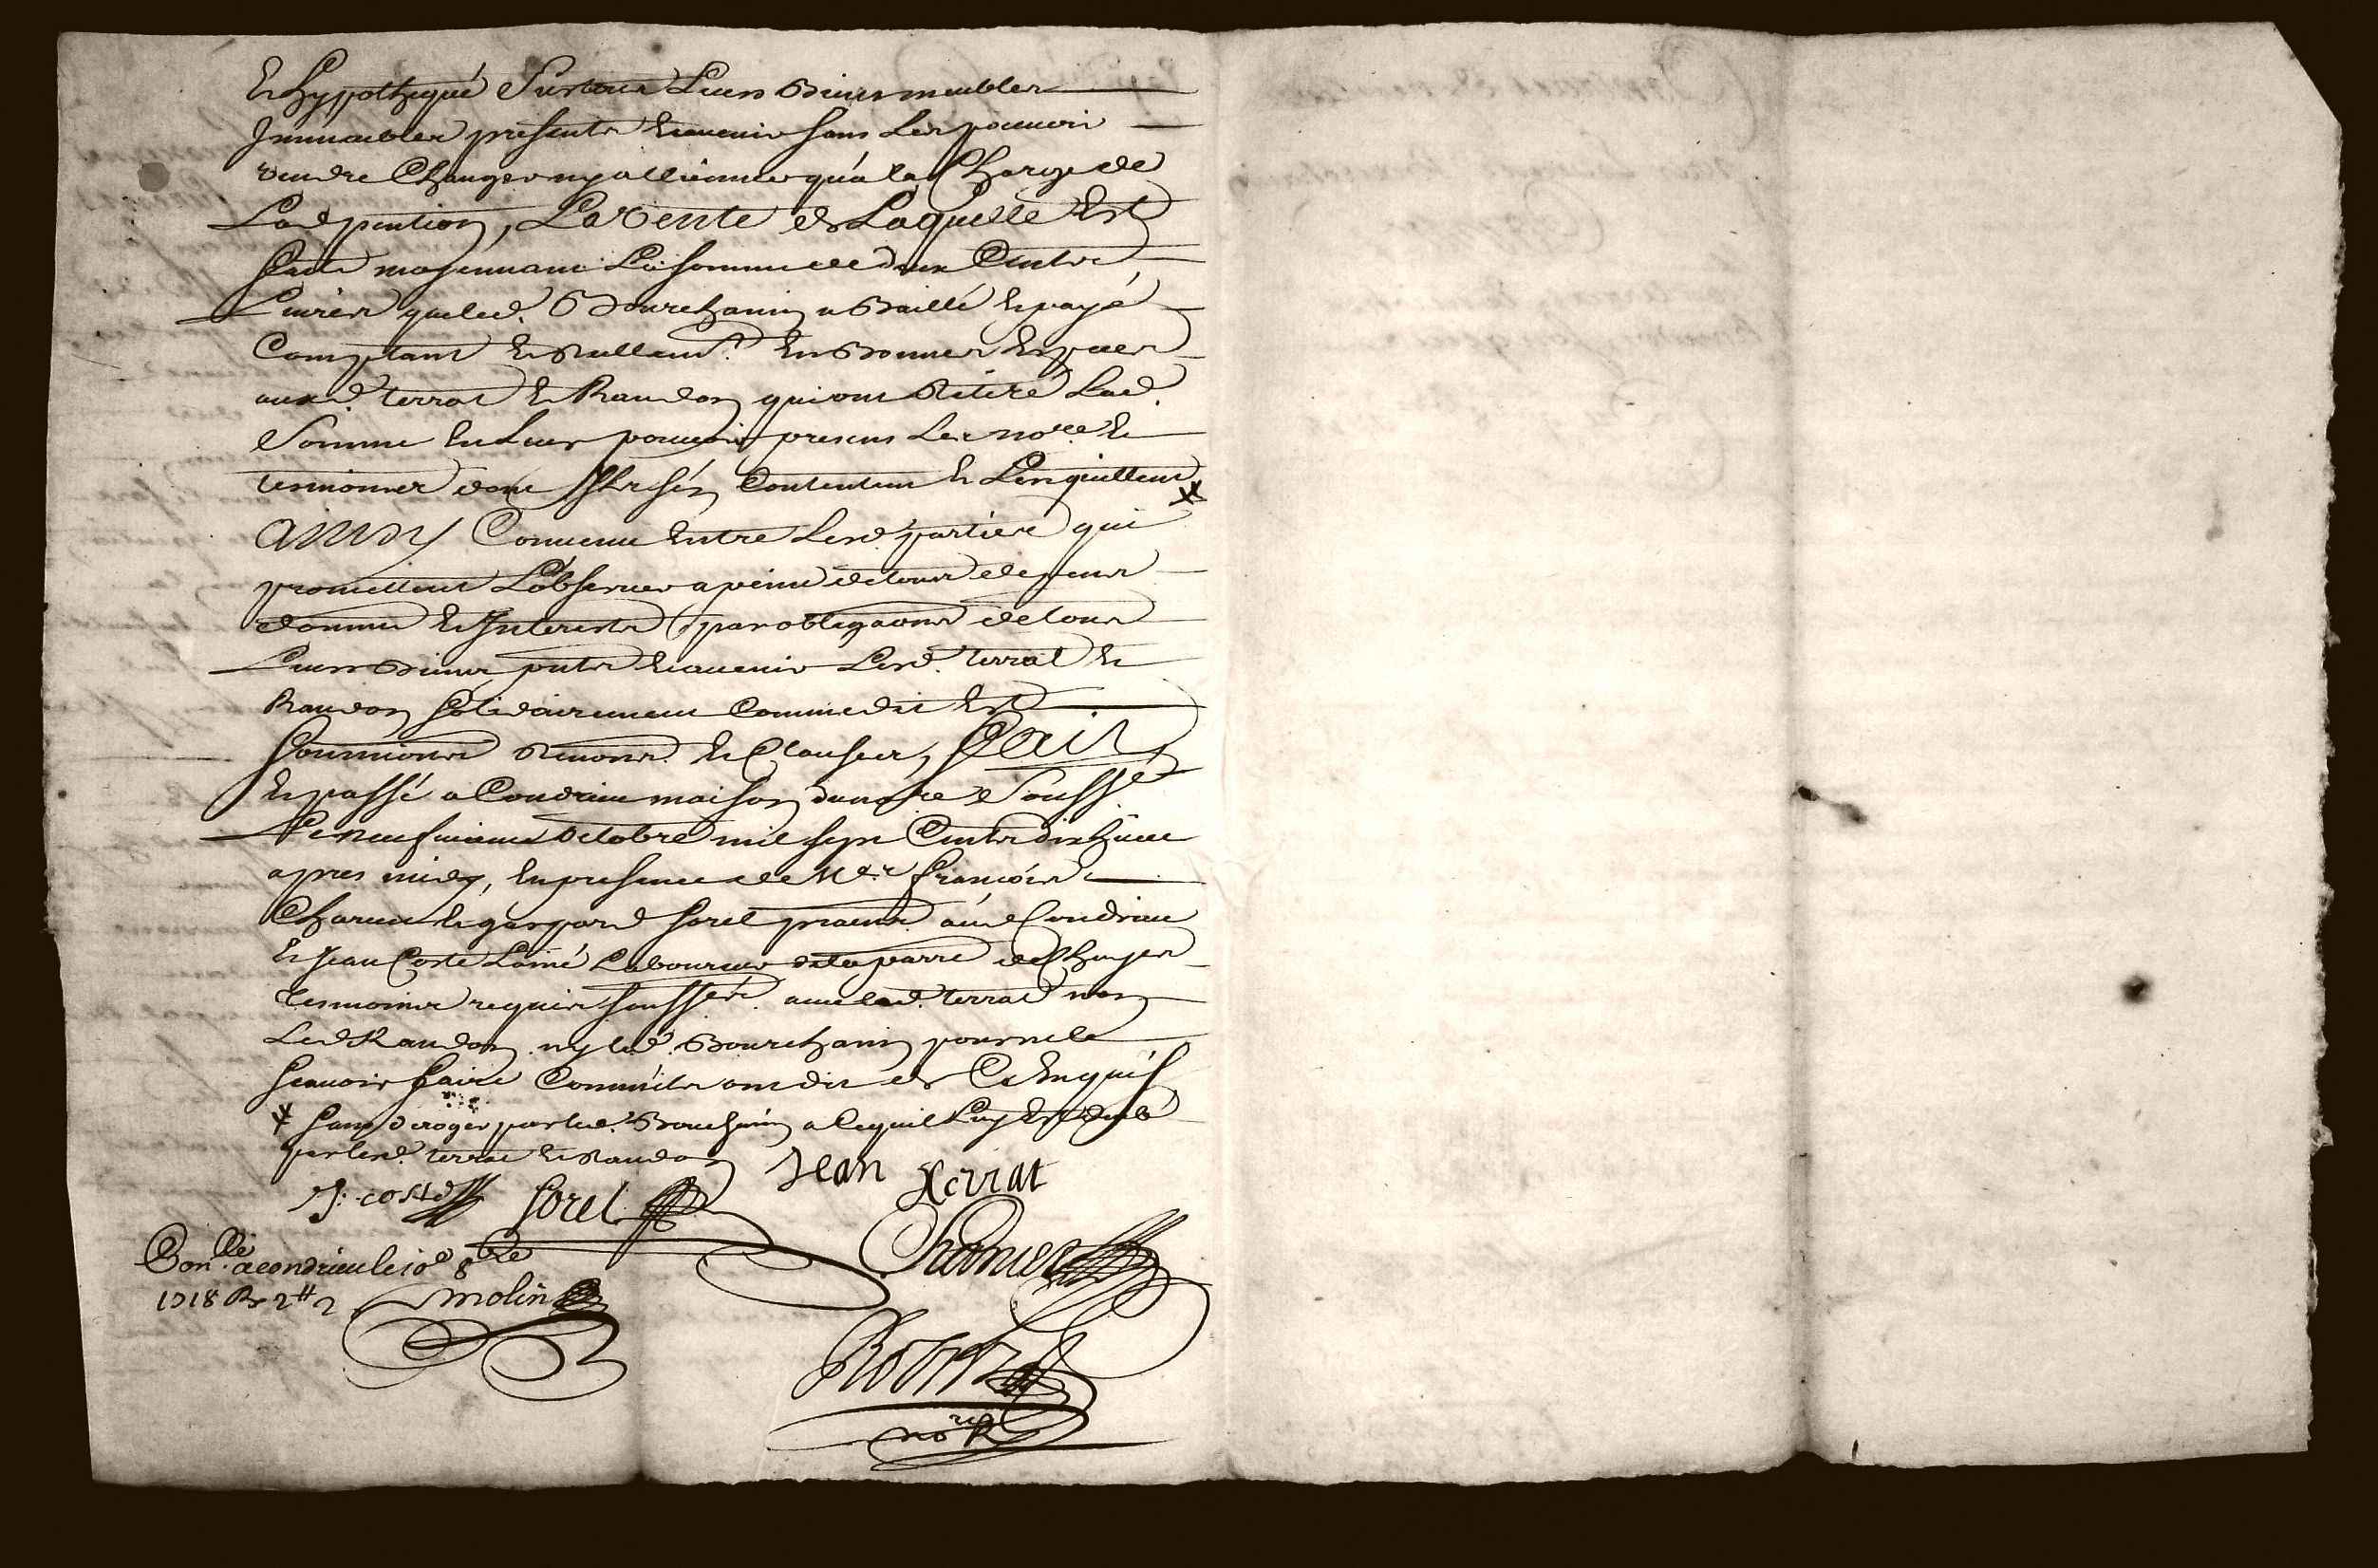 Et hyppothequé Sur tous Leurs Biens meubles
Immeubles presents Et avenir sans Les pouvoir
vendre Changer ny allienner qu'à la Charge de
Lad pention, La Vente de Laquelle Est
faite moyennant La somme de deux Cents
Livres que led. Bourchanin a Baillé Et payé
Comptant Et Reellemt. En Bonnes Espèces
auxd. terrat Et Randon qui ont Retiré Lad.
Somme En Leur pouvoir presens Les nore. Et
tesmoins dont Ils se sen Contentent Et L'en quittent
ainsy Convenu Entre Lesd. parties qui
promettent L'observer a peine de tous despens
dommes Et Interests par obligaons de tous
Leurs Biens pnts Et avenir Lesd. terrat Et
Randon solidairement Comme dit Est
soumions Renons. Et Clauses, fait
Et passé a Condrieu maison du nore Soussé
Le neufvieme Octobre mil sept Cents dix huict
apres midy, En presence de Mer. françois
Et gaspard sorel pratns. aud Condrieu
Et Jean Coste L'ainé Laboureur de la parre de Chuyer
tesmoins requis soussés. avec led. terrat non
Led Randon ny led. Bourchanin pour ne le
scavoir faire Comm'ils ont dit de Ce Enquis
sans deroger par led. Bourchanin a Ce qu'il Luy Est dub
par lesd. terrat Et Randon
Jean terrat
J: coste sorel
Conlle. a condrieu le 10e 8bre
1718 R 2# 2 molin
nore R